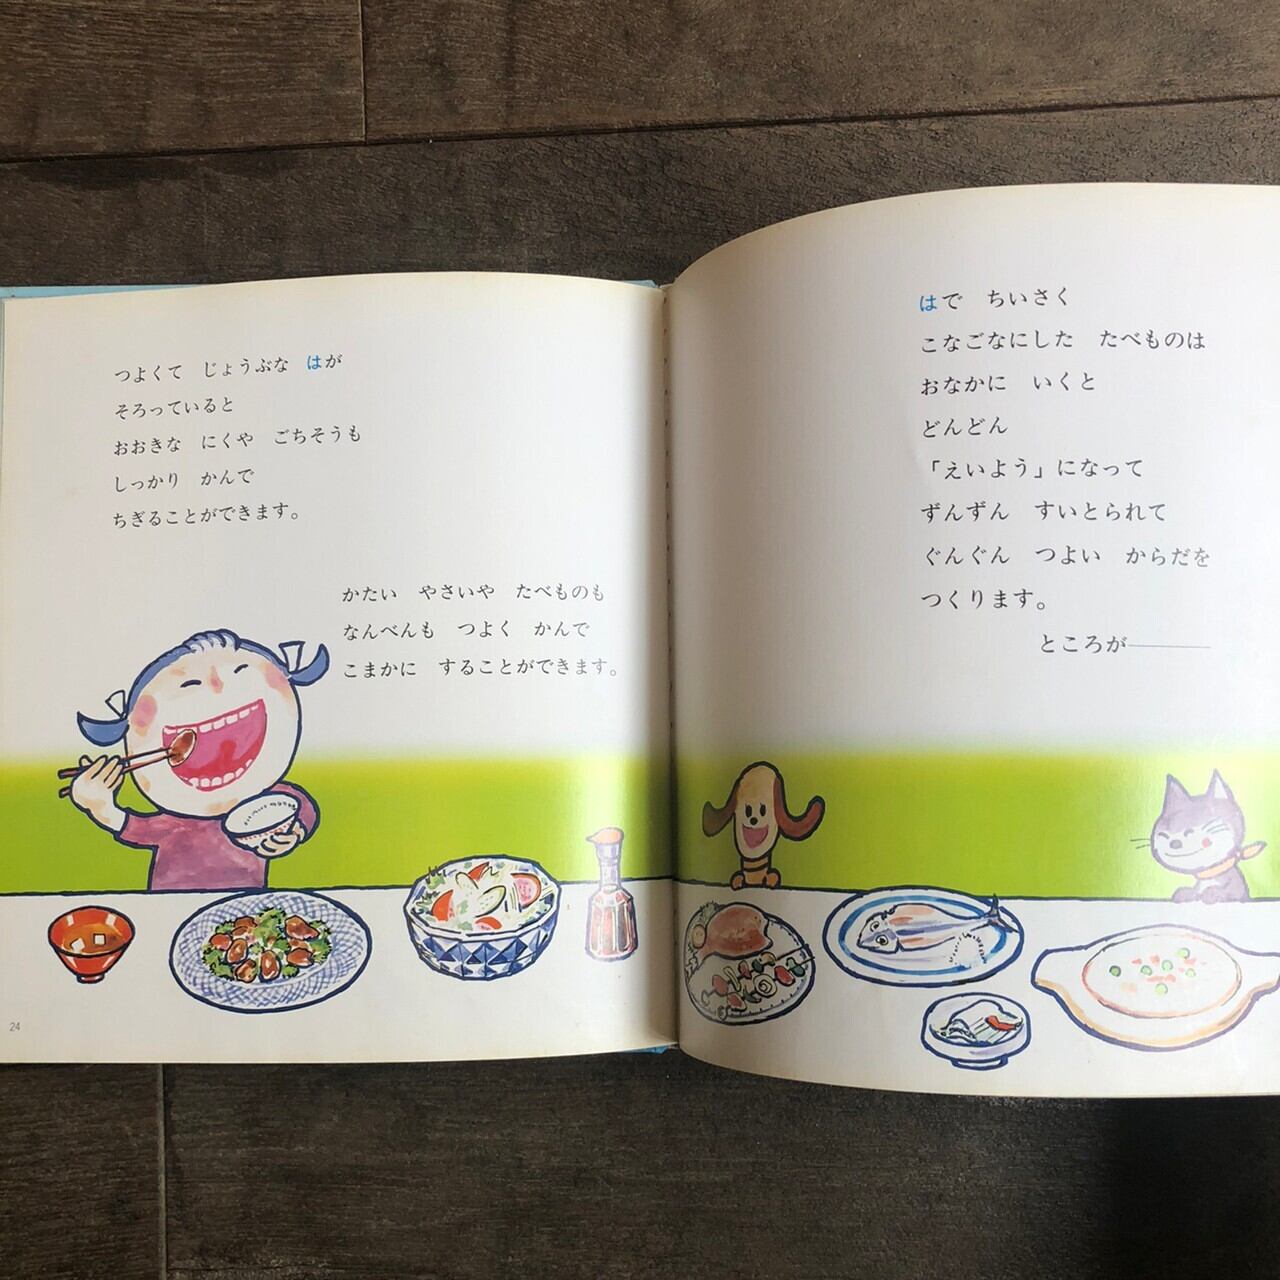 つよくて　じょうぶな　はが
そろっていると
おおきな　にくや　ごちそうも
しっかり　かんで
ちぎることができます。
かたい　やさいや　たべものも
なんべんも　つよく　かんで
こまかに　することができます。
24
はで　ちいさく
こなごなにした　たべものは
おなかに　いくと
どんどん
「えいよう」になって
ずんずん　すいとられて
ぐんぐん　つよい　からだを
つくります。
ところが――